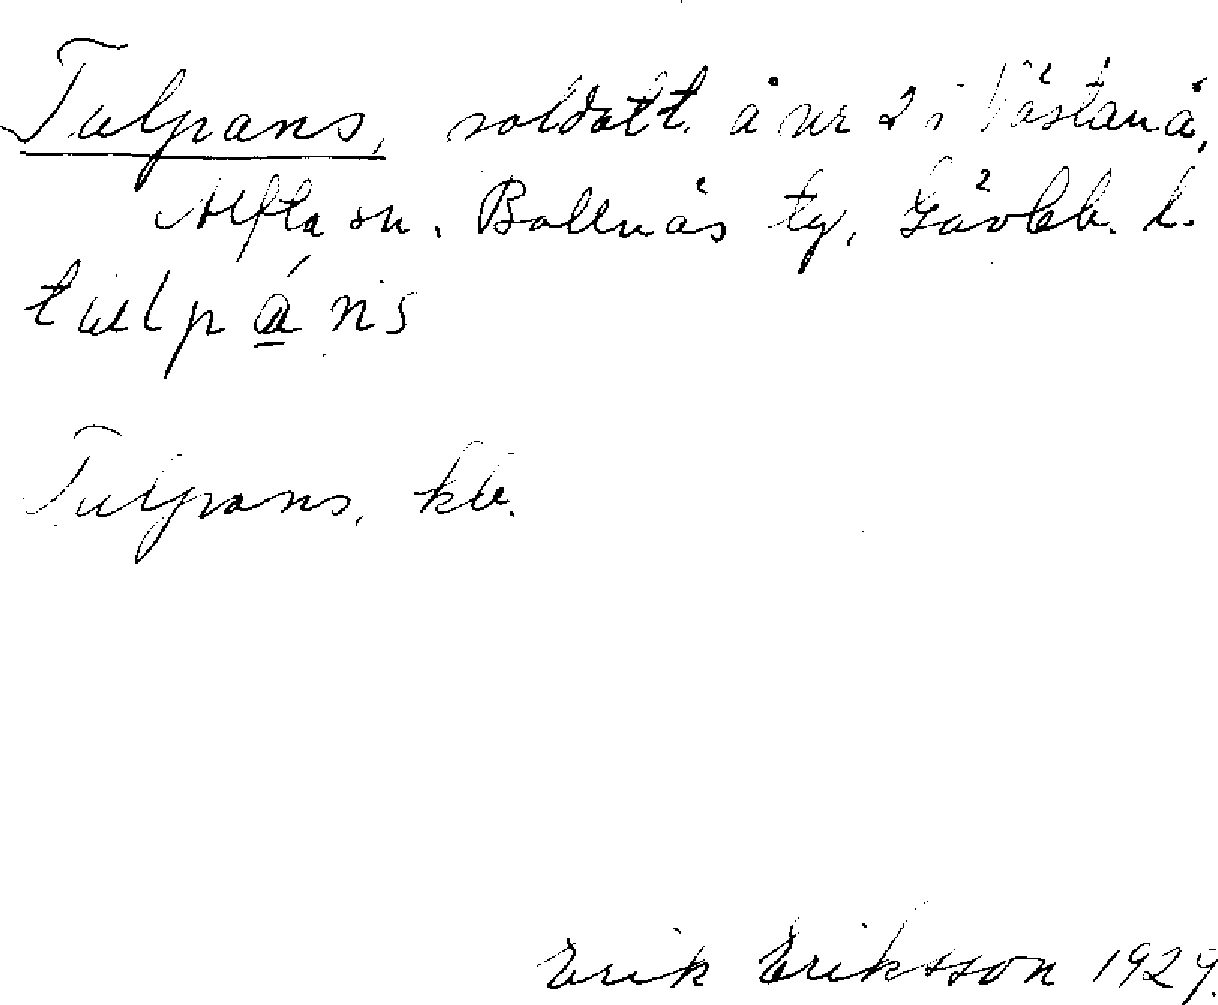 Tulpans, soldatt. å nr 2 i Västanå,
Alfta sn. Bollnäs tg, Gävleb. l.
tulpáns
Tulpans, kb.
Erik Eriksson 1929.